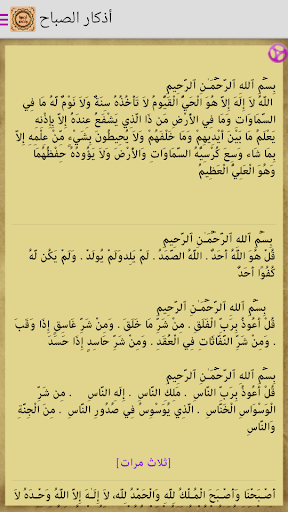 أذكار الصباح
بِسْمِ اَللهِ اَلرَّحْمَـٰنِ اَلرَّحِيمِ
اللَّهُ لاَ إِلَهَ إِلاَّ هُوَ الْحَيُّ الْقَيُّومُ لاَ تَأْخُذُهُ سِنَةٌ وَلاَ نَوْمٌ لَّهُ مَا فِي
السَّمَاوَاتِ وَمَا فِي الأَرْضِ مَن ذَا الَّذِي يَشْفَعُ عِندَهُ إِلاَّ بِإِذْنِهِ
يَعْلَمُ مَا بَيْنَ أَيْدِيهِمْ وَمَا خَلْفَهُمْ وَلاَ يُحِيطُونَ بِشَيْءٍ مِّنْ عِلْمِهِ إِلاَّ
بِمَا شَاء وَسِعَ كُرْسِيُّهُ السَّمَاوَاتِ وَالأَرْضَ وَلاَ يَؤُودُهُ حِفْظُهُمَا
وَهُوَ الْعَلِيُّ الْعَظِيمُ
بِسْمِ اَللهِ اَلرَّحْمَـٰنِ اَلرَّحِيمِ
قُلْ هُوَ اللَّهُ أَحَدٌ . اللَّهُ الصَّمَدُ . لَمْ يَلِدْوَلَمْ يُولَدْ . وَلَمْ يَكُن لَّهُ
كُفُوًا أَحَدٌ
بِسْمِ اَللهِ اَلرَّحْمَـٰنِ اَلرَّحِيمِ
قُلْ أَعُوذُ بِرَبِّ الْفَلَقِ . مِن شَرِّ مَا خَلَقَ . وَمِن شَرِّ غَاسِقٍ إِذَا وَقَبَ
. وَمِن شَرِّ النَّفَّاثَاتِ فِي الْعُقَدِ . وَمِن شَرِّ حَاسِدٍ إِذَا حَسَدَ
بِسْمِ اَللهِ اَلرَّحْمَـٰنِ اَلرَّحِيمِ
قُلْ أَعُوذُ بِرَبِّ النَّاسِ . مَلِكِ النَّاسِ . إِلَهِ النَّاسِ . مِن شَرِّ
الْوَسْوَاسِ الْخَنَّاسِ . الَّذِي يُوَسْوِسُ فِي صُدُورِ النَّاسِ . مِنَ الْجِنَّةِ
وَالنَّاسِ
[ثلاث مرات]
أَصْبَحْنَا وَأَصْبَحَ الْمُـلْكُ لِلَّهِ وَالْحَمْدُ لِلَّهِ، لاَ إِلَـٰهَ إِلاَّ اللَّهُ وَحْـدَهُ لاَ